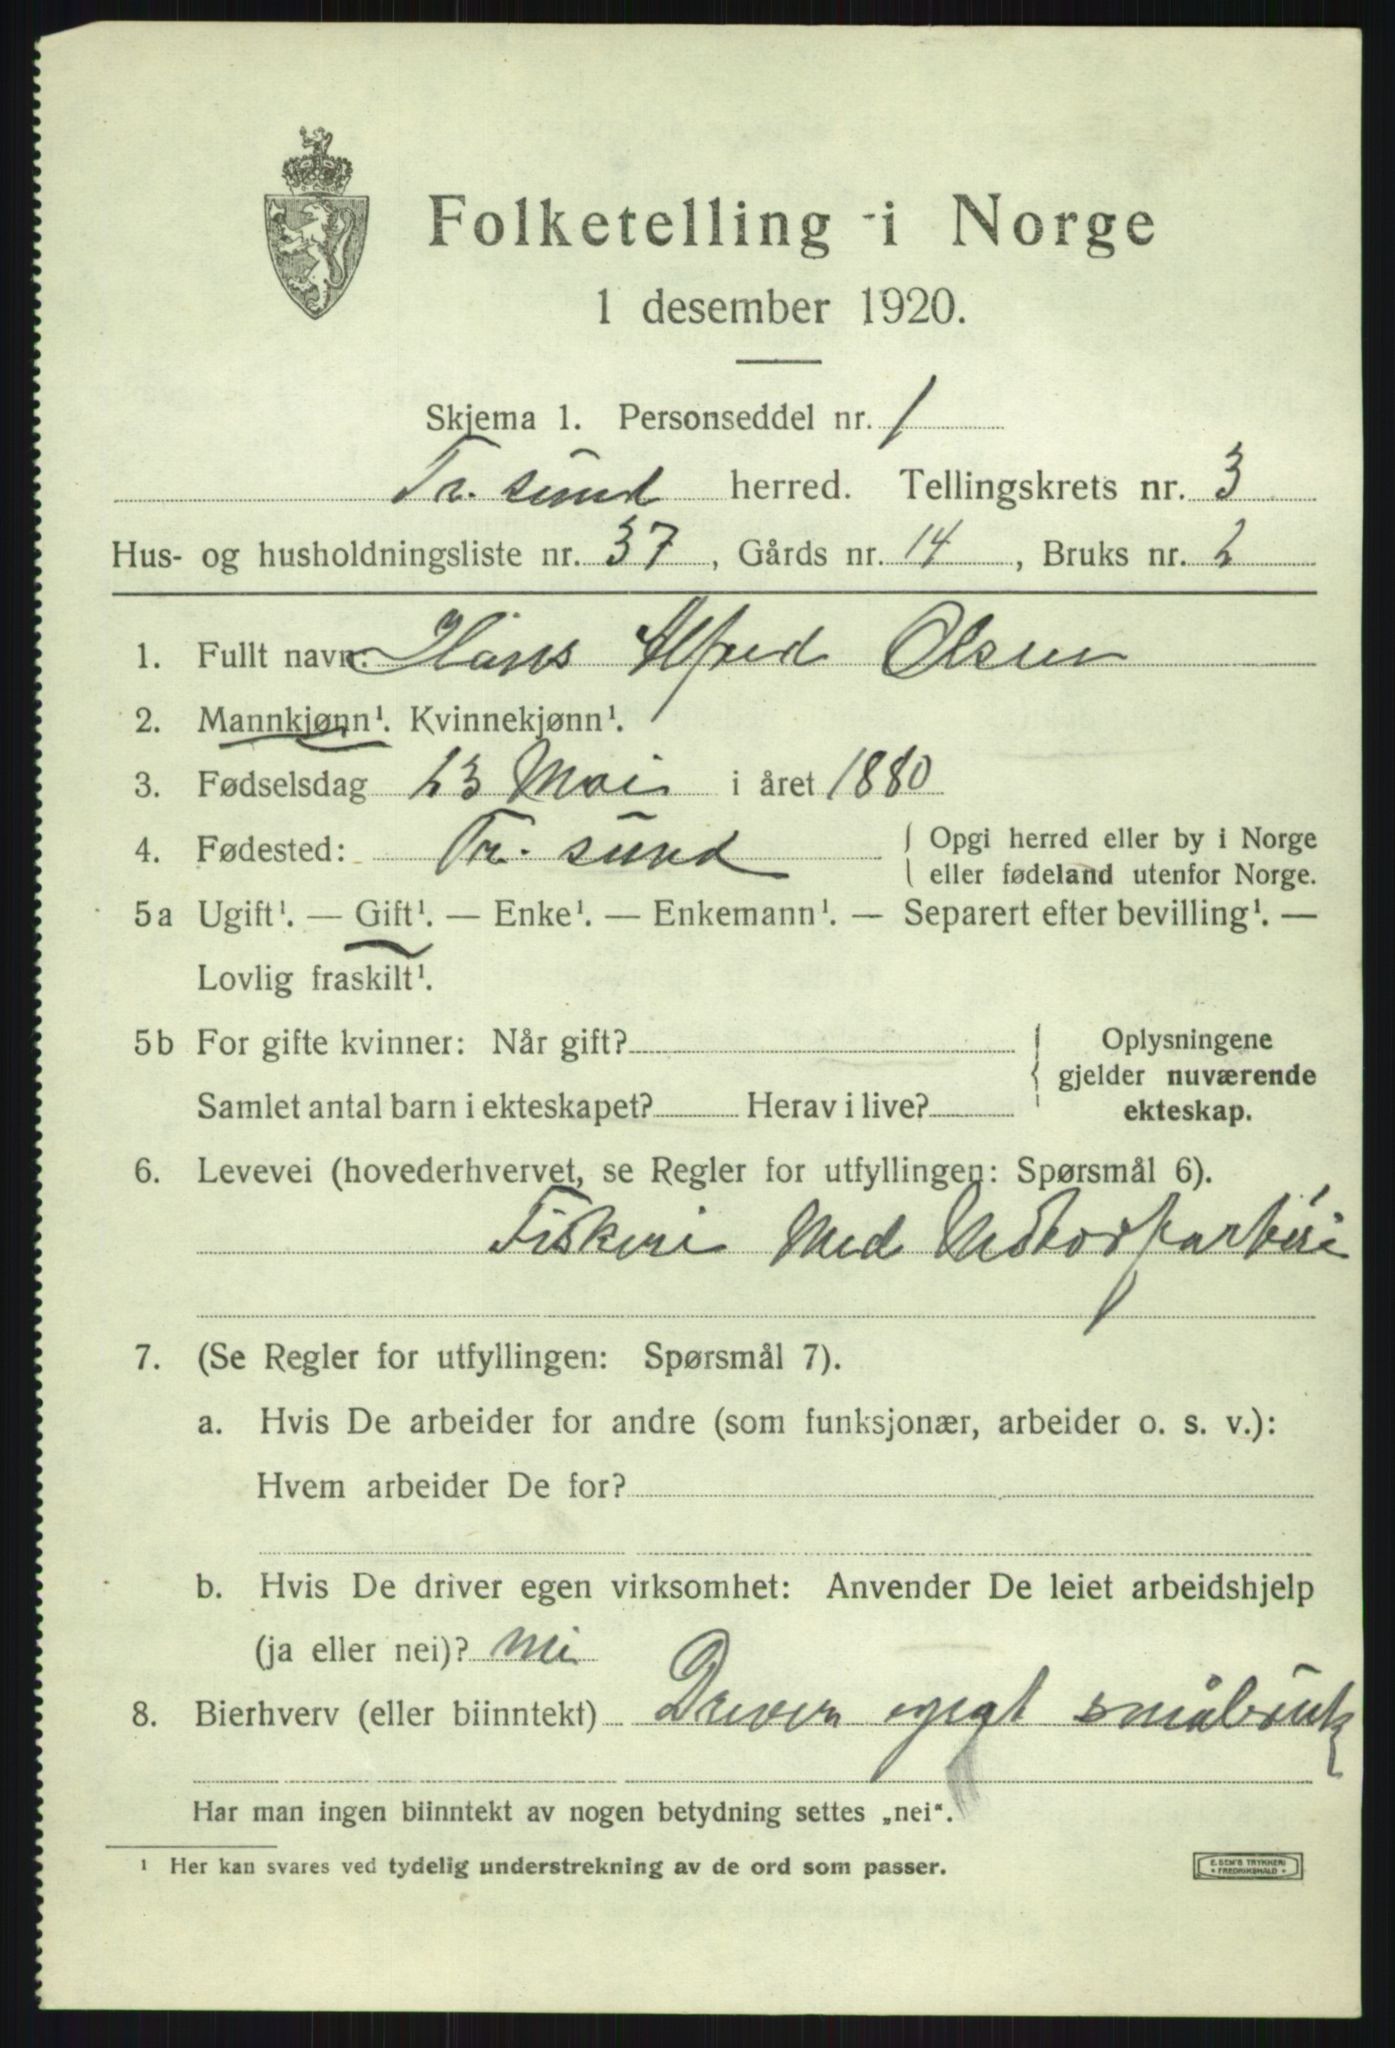 Folketelling i Norge
1 desember 1920.
Skjema 1. Personseddel nr. 1
Tr. sund herred. Tellingskrets nr. 3
Hus- og husholdningsliste nr. 37, Gårds nr. 14, Bruks nr. 2
1. Fullt navn: Hans Alfred Olsen
2. Mannkjønn¹. Kvinnekjønn¹.
3. Fødselsdag 23 Mai i året 1880
4. Fødested: Tr. sund
Opgi herred eller by i Norge
eller fødeland utenfor Norge.
5a Ugift¹. — Gift¹. — Enke¹. — Enkemann¹. — Separert efter bevilling¹. —
Lovlig fraskilt¹.
5b For gifte kvinner: Når gift?
Samlet antal barn i ekteskapet? Herav i live?
Oplysningene
gjelder nuværende
ekteskap.
6. Levevei (hovederhvervet, se Regler for utfyllingen: Spørsmål 6).
Fiskeri Med
7. (Se Regler for utfyllingen: Spørsmål 7).
a. Hvis De arbeider for andre (som funksjonær, arbeider o. s. v.):
Hvem arbeider De for?
b. Hvis De driver egen virksomhet: Anvender De leiet arbeidshjelp
(ja eller nei)? nei
8. Bierhverv (eller biinntekt) Driver eget småbruk
Har man ingen biinntekt av nogen betydning settes „nei“.
¹ Her kan svares ved tydelig understrekning av de ord som passer.
E. SEM'S TRYKKERI
• FREDRIKSHALD •